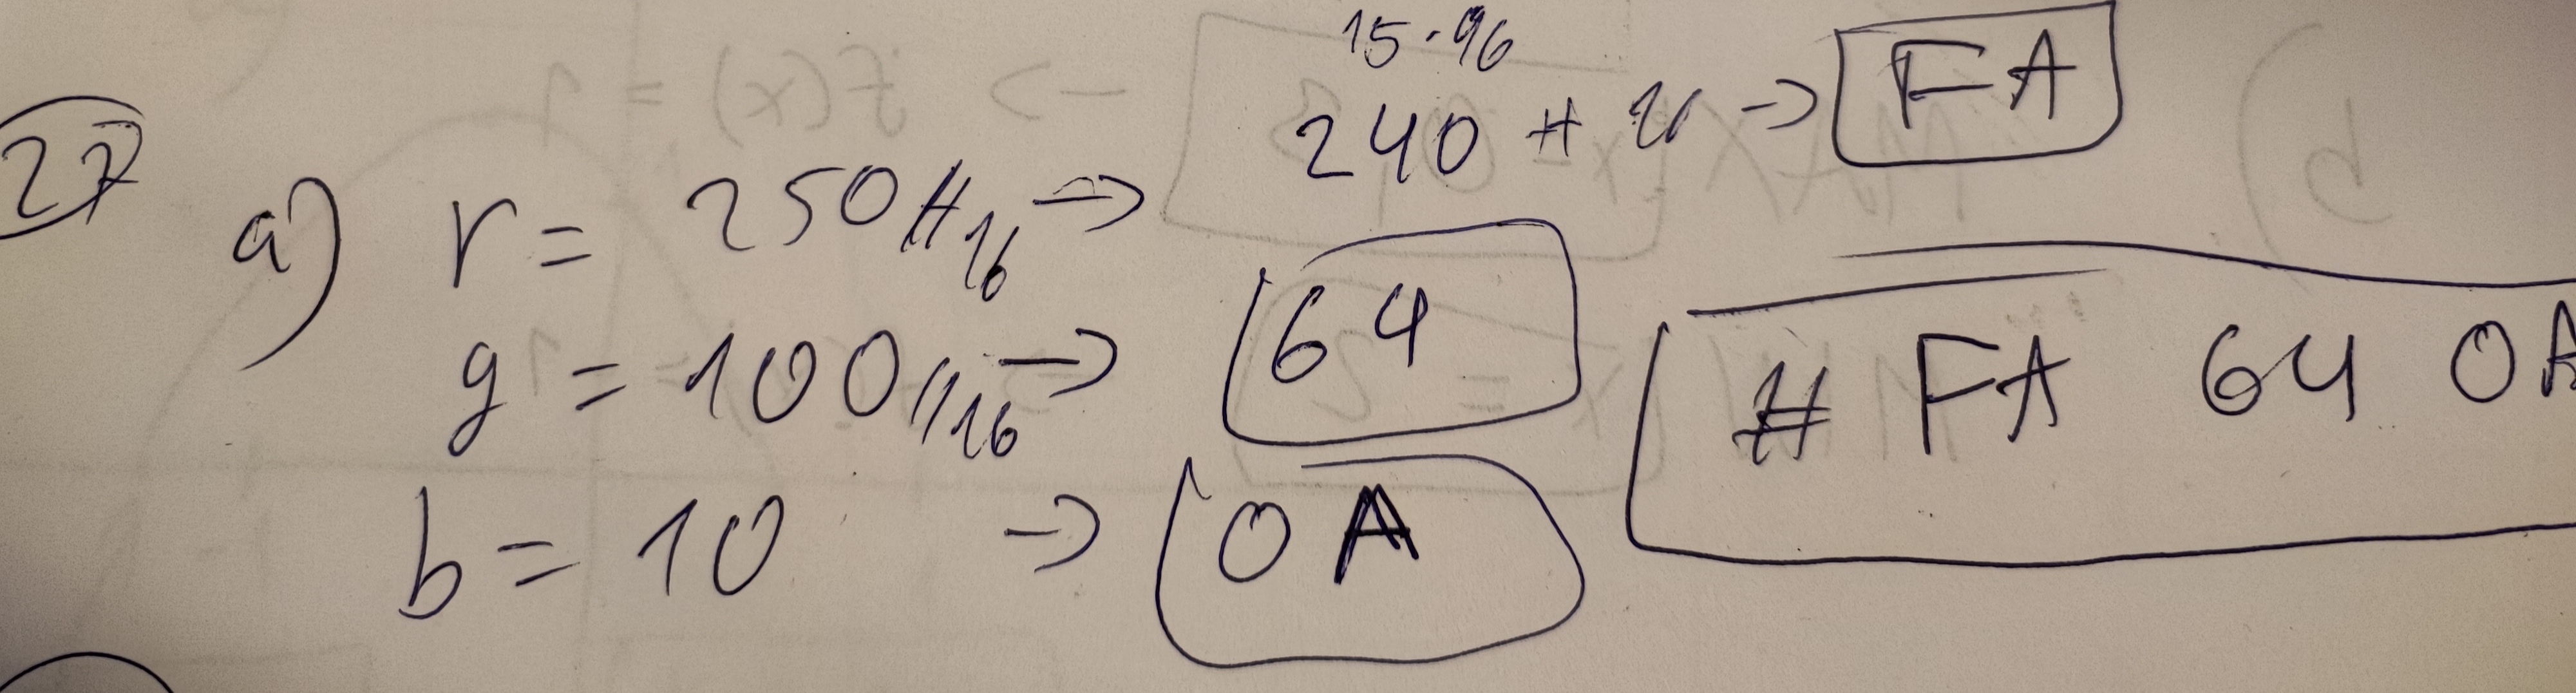 27
a) r = 250 //16 → 15·16
240 + → FA
g = 100 //16 → 64
b = 10 → 0A
# FA 64 0A